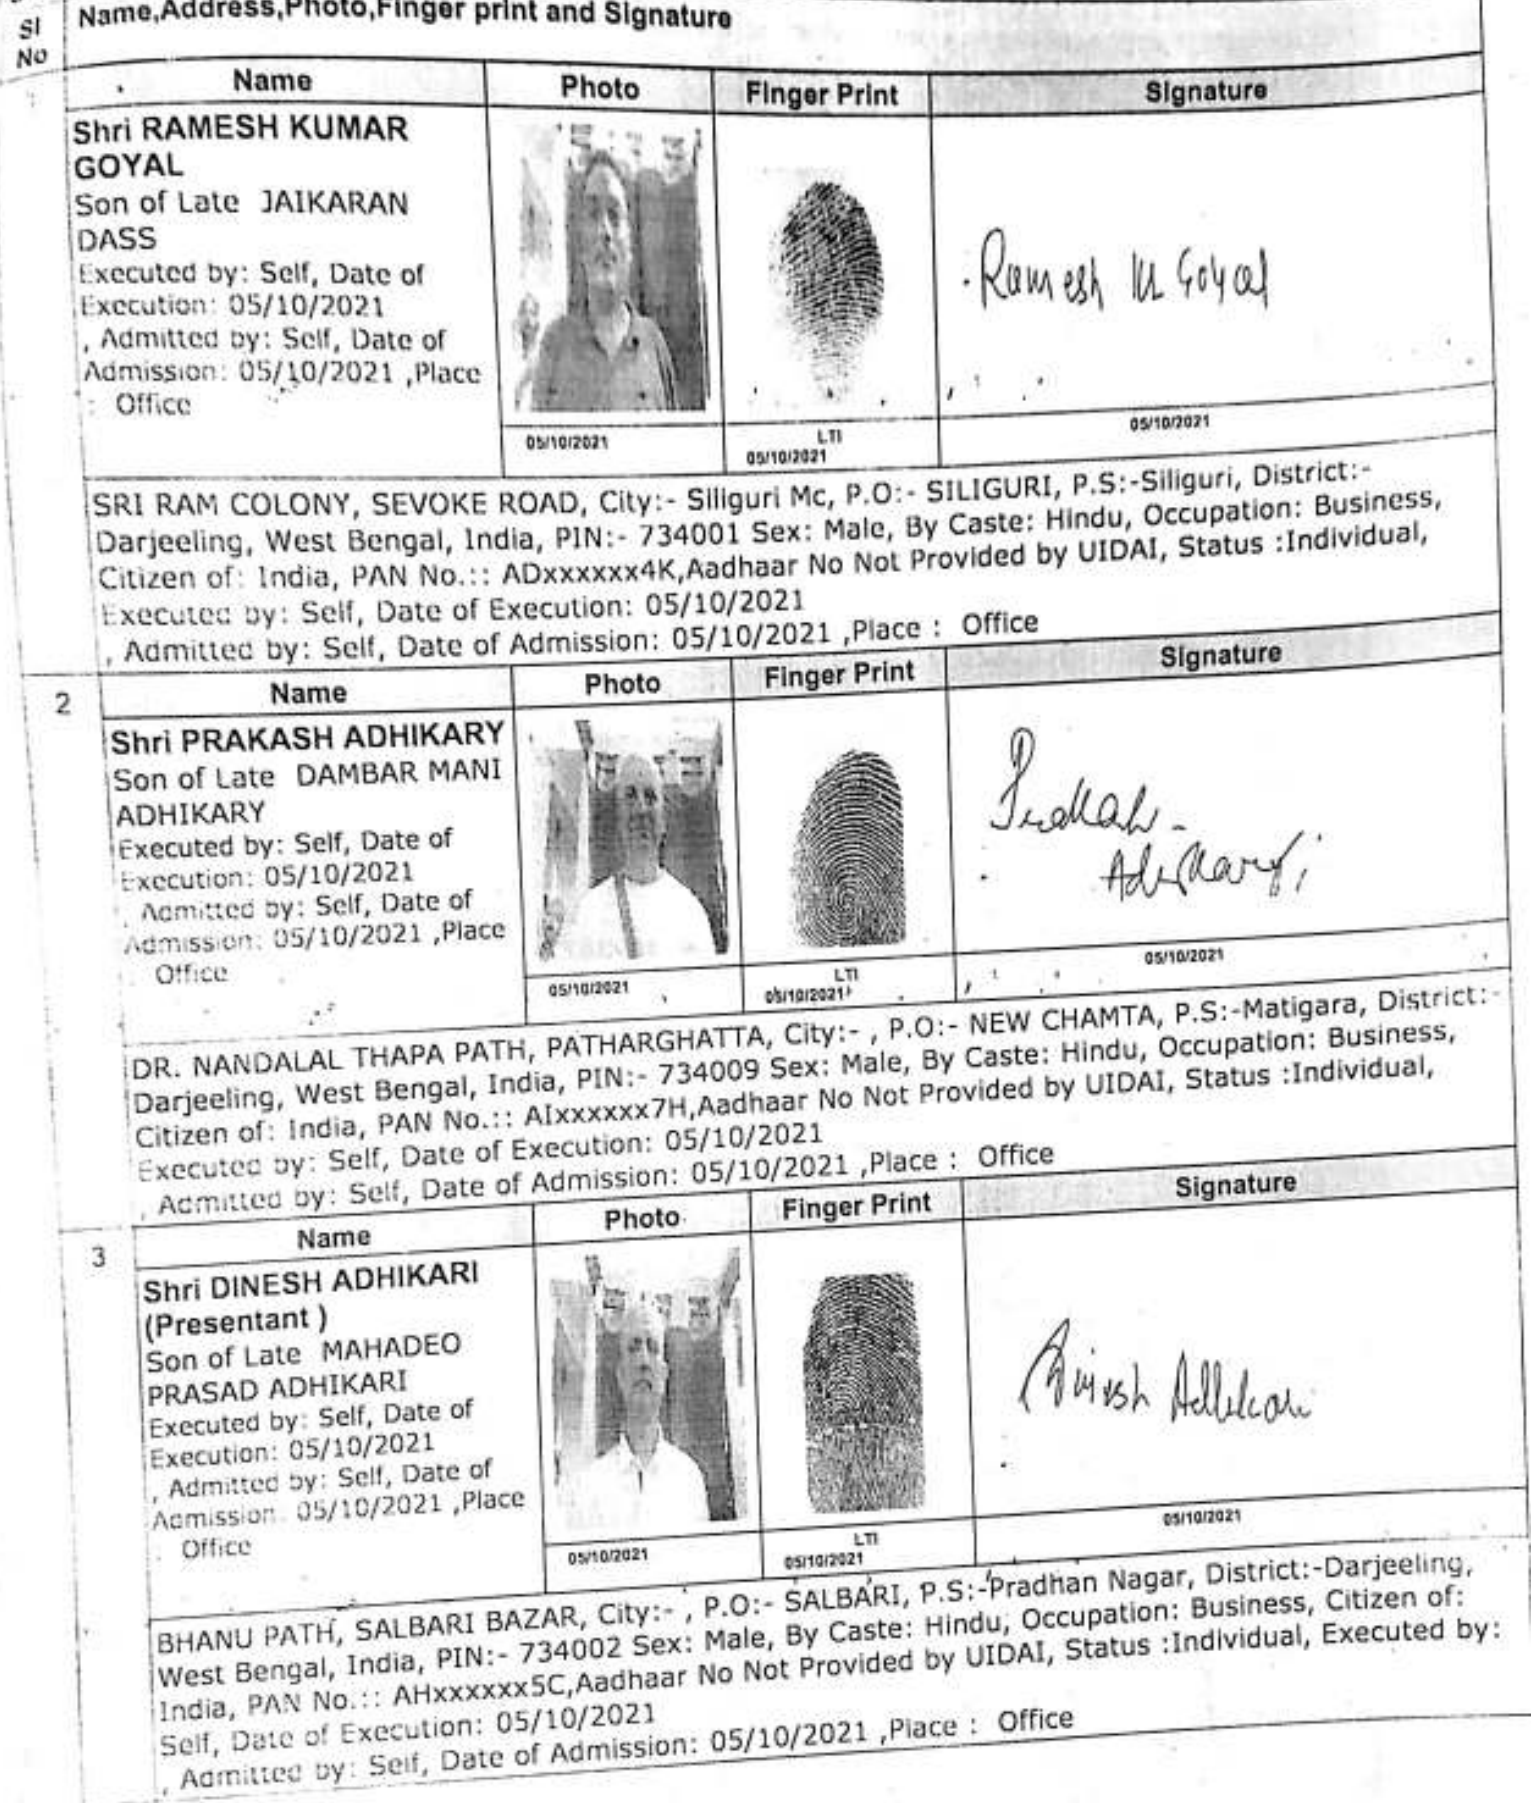 Sl
No
Name,Address,Photo,Finger print and Signature
Name
Photo
Finger Print
Signature
Shri RAMESH KUMAR
GOYAL
Son of Late JAIKARAN
DASS
Executed by: Self, Date of
Execution: 05/10/2021
, Admitted by: Self, Date of
Admission: 05/10/2021 ,Place
: Office
Ramesh Kr Goyal
05/10/2021
LTI
05/10/2021
05/10/2021
SRI RAM COLONY, SEVOKE ROAD, City:- Siliguri Mc, P.O:- SILIGURI, P.S:-Siliguri, District:-
Darjeeling, West Bengal, India, PIN:- 734001 Sex: Male, By Caste: Hindu, Occupation: Business,
Citizen of: India, PAN No.:: ADxxxxxx4K,Aadhaar No Not Provided by UIDAI, Status :Individual,
Executed by: Self, Date of Execution: 05/10/2021
, Admitted by: Self, Date of Admission: 05/10/2021 ,Place : Office
2
Name
Photo
Finger Print
Signature
Shri PRAKASH ADHIKARY
Son of Late DAMBAR MANI
ADHIKARY
Executed by: Self, Date of
Execution: 05/10/2021
, Admitted by: Self, Date of
Admission: 05/10/2021 ,Place
: Office
05/10/2021
LTI
05/10/2021
05/10/2021
DR. NANDALAL THAPA PATH, PATHARGHATTA, City:- , P.O:- NEW CHAMTA, P.S:-Matigara, District:-
Darjeeling, West Bengal, India, PIN:- 734009 Sex: Male, By Caste: Hindu, Occupation: Business,
Citizen of: India, PAN No.:: AIxxxxxx7H,Aadhaar No Not Provided by UIDAI, Status :Individual,
Executed by: Self, Date of Execution: 05/10/2021
, Admitted by: Self, Date of Admission: 05/10/2021 ,Place : Office
3
Name
Photo
Finger Print
Signature
Shri DINESH ADHIKARI
(Presentant )
Son of Late MAHADEO
PRASAD ADHIKARI
Executed by: Self, Date of
Execution: 05/10/2021
, Admitted by: Self, Date of
Admission: 05/10/2021 ,Place
: Office
Dinesh Adhikari
05/10/2021
LTI
05/10/2021
05/10/2021
BHANU PATH, SALBARI BAZAR, City:- , P.O:- SALBARI, P.S:-Pradhan Nagar, District:-Darjeeling,
West Bengal, India, PIN:- 734002 Sex: Male, By Caste: Hindu, Occupation: Business, Citizen of:
India, PAN No.:: AHxxxxxx5C,Aadhaar No Not Provided by UIDAI, Status :Individual, Executed by:
Self, Date of Execution: 05/10/2021
, Admitted by: Self, Date of Admission: 05/10/2021 ,Place : Office